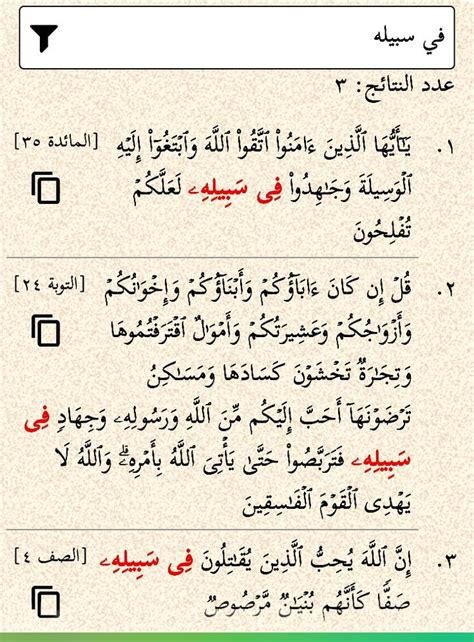 في سبيله
عدد النتائج: ٣
١. يَـٰٓأَيُّهَا ٱلَّذِينَ ءَامَنُوا۟ ٱتَّقُوا۟ ٱللَّهَ وَٱبْتَغُوٓا۟ إِلَيْهِ [المائدة ٣٥]
ٱلْوَسِيلَةَ وَجَـٰهِدُوا۟ فِى سَبِيلِهِۦ لَعَلَّكُمْ
تُفْلِحُونَ
٢. قُلْ إِن كَانَ ءَابَآؤُكُمْ وَأَبْنَآؤُكُمْ وَإِخْوَٰنُكُمْ [التوبة ٢٤]
وَأَزْوَٰجُكُمْ وَعَشِيرَتُكُمْ وَأَمْوَٰلٌ ٱقْتَرَفْتُمُوهَا
وَتِجَـٰرَةٌ تَخْشَوْنَ كَسَادَهَا وَمَسَـٰكِنُ
تَرْضَوْنَهَآ أَحَبَّ إِلَيْكُم مِّنَ ٱللَّهِ وَرَسُولِهِۦ وَجِهَادٍ فِى
سَبِيلِهِۦ فَتَرَبَّصُوا۟ حَتَّىٰ يَأْتِىَ ٱللَّهُ بِأَمْرِهِۦ ۗ وَٱللَّهُ لَا
يَهْدِى ٱلْقَوْمَ ٱلْفَـٰسِقِينَ
٣. إِنَّ ٱللَّهَ يُحِبُّ ٱلَّذِينَ يُقَـٰتِلُونَ فِى سَبِيلِهِۦ [الصف ٤]
صَفًّا كَأَنَّهُم بُنْيَـٰنٌ مَّرْصُوصٌ